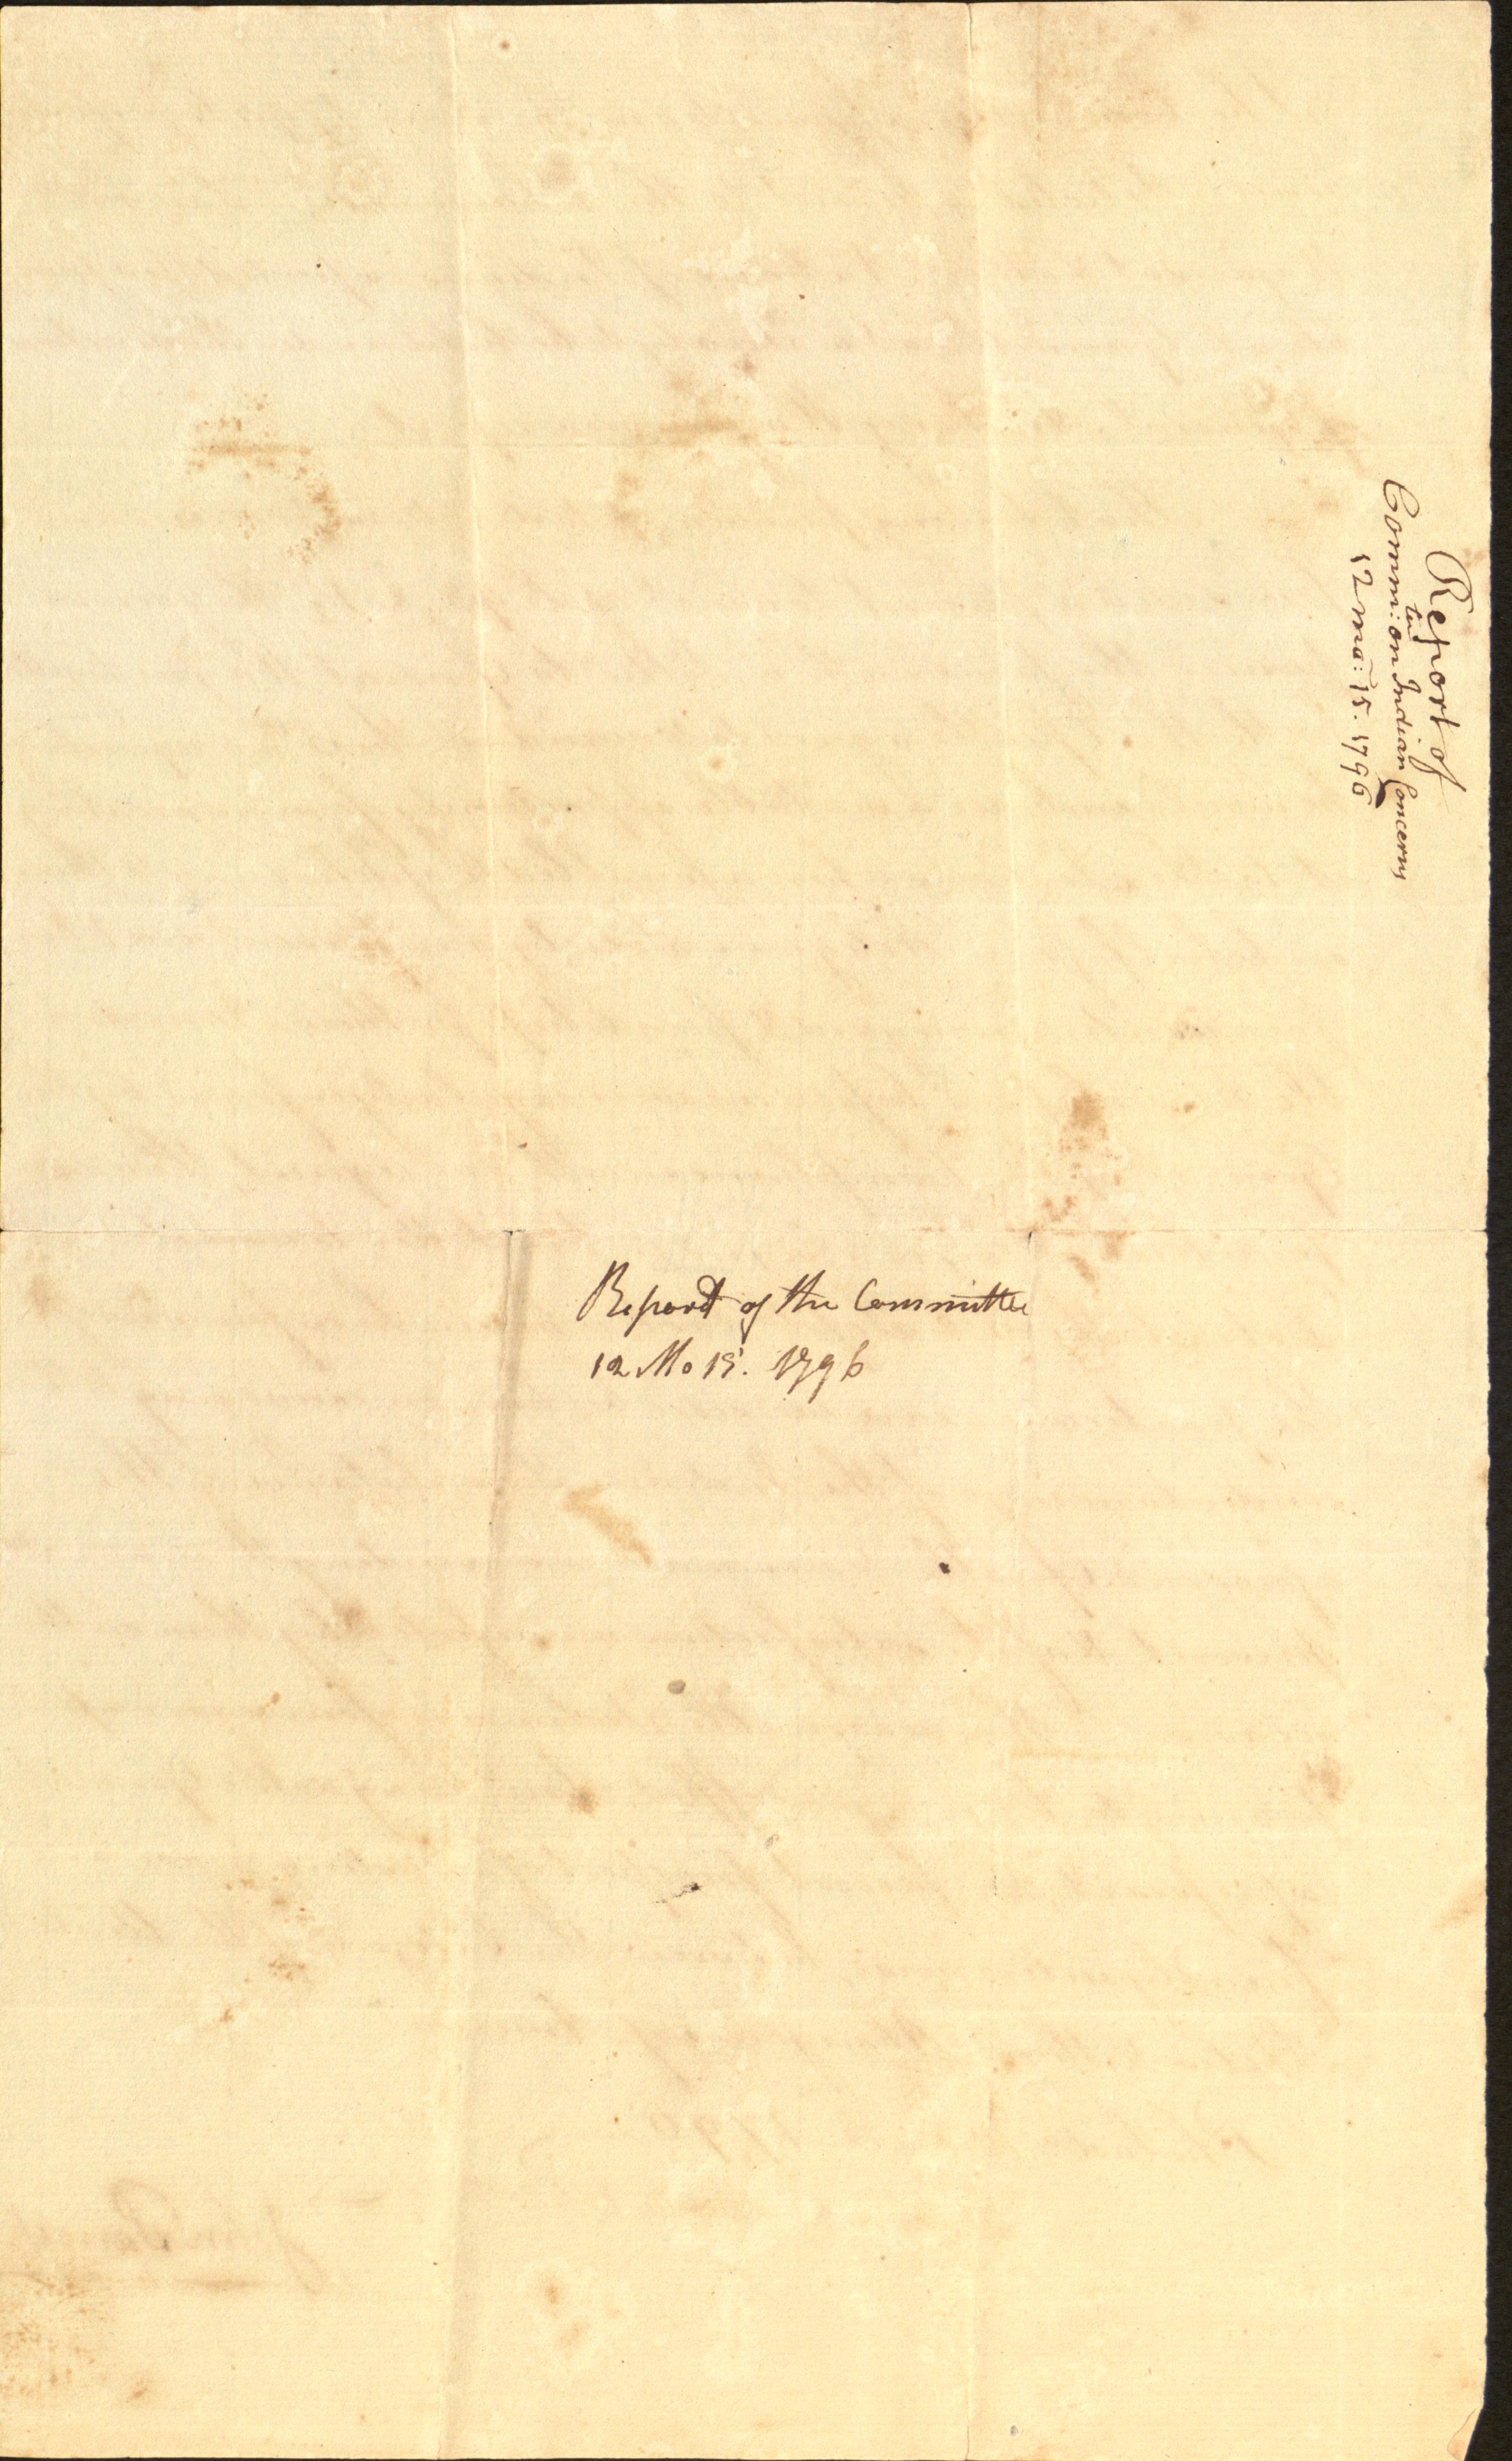 Report of
Comm:tee on Indian Concerns
12 mo: 15. 1796
Report of the Committee
12 Mo 15. 1796